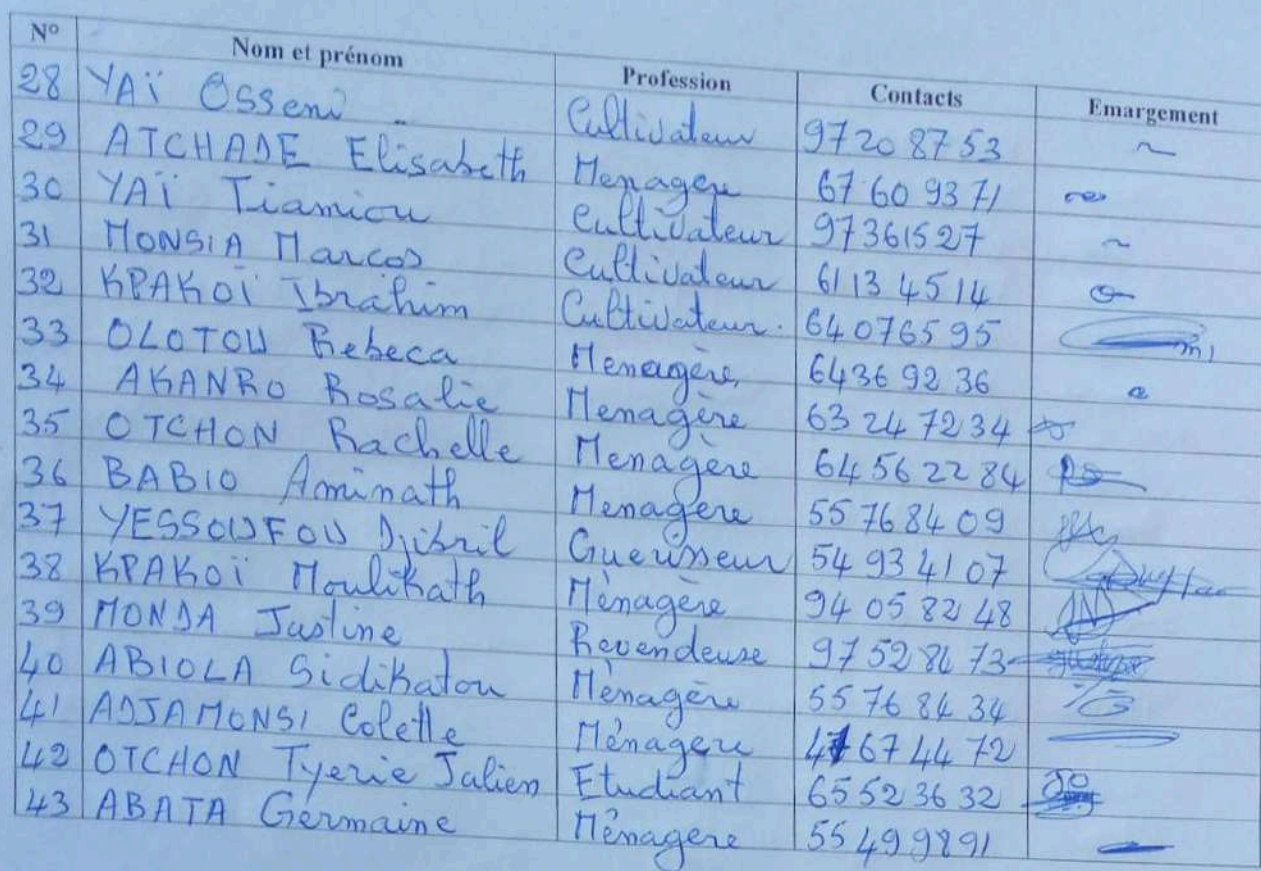 N° Nom et prénom Profession Contacts Emargement
28 YAÏ Osseni Cultivateur 97 20 87 53
29 ATCHADE Elisabeth Menagere 67 60 93 71
30 YAÏ Tiamiou Cultivateur 97361527
31 MONSIA Marcos Cultivateur 61 13 45 14
32 KPAKOÏ Ibrahim Cultivateur. 64 07 65 95
33 OLOTOU Rebeca Menagère 64369236
34 AKANRO Rosalie Menagère 63 24 72 34
35 OTCHON Rachelle Menagère 64 56 22 84
36 BABIO Aminath Menagère 55 76 84 09
37 YESSOUFOU Djibril Guerisseur 54 93 41 07
38 KPAKOÏ Moulikath Ménagère 94 05 82 48
39 MONDA Justine Revendeuse 97 52 84 73
40 ABIOLA Sidikatou Ménagère 55 76 84 34
41 ADJAMONSI Colette Ménagere 67 44 72
42 OTCHON Tyerie Julien Etudiant 65 52 36 32
43 ABATA Germaine Ménagere 55 49 98 91